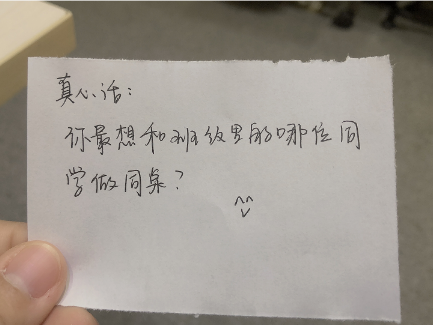 真心话:
你最想和班级里的哪位同
学做同桌?